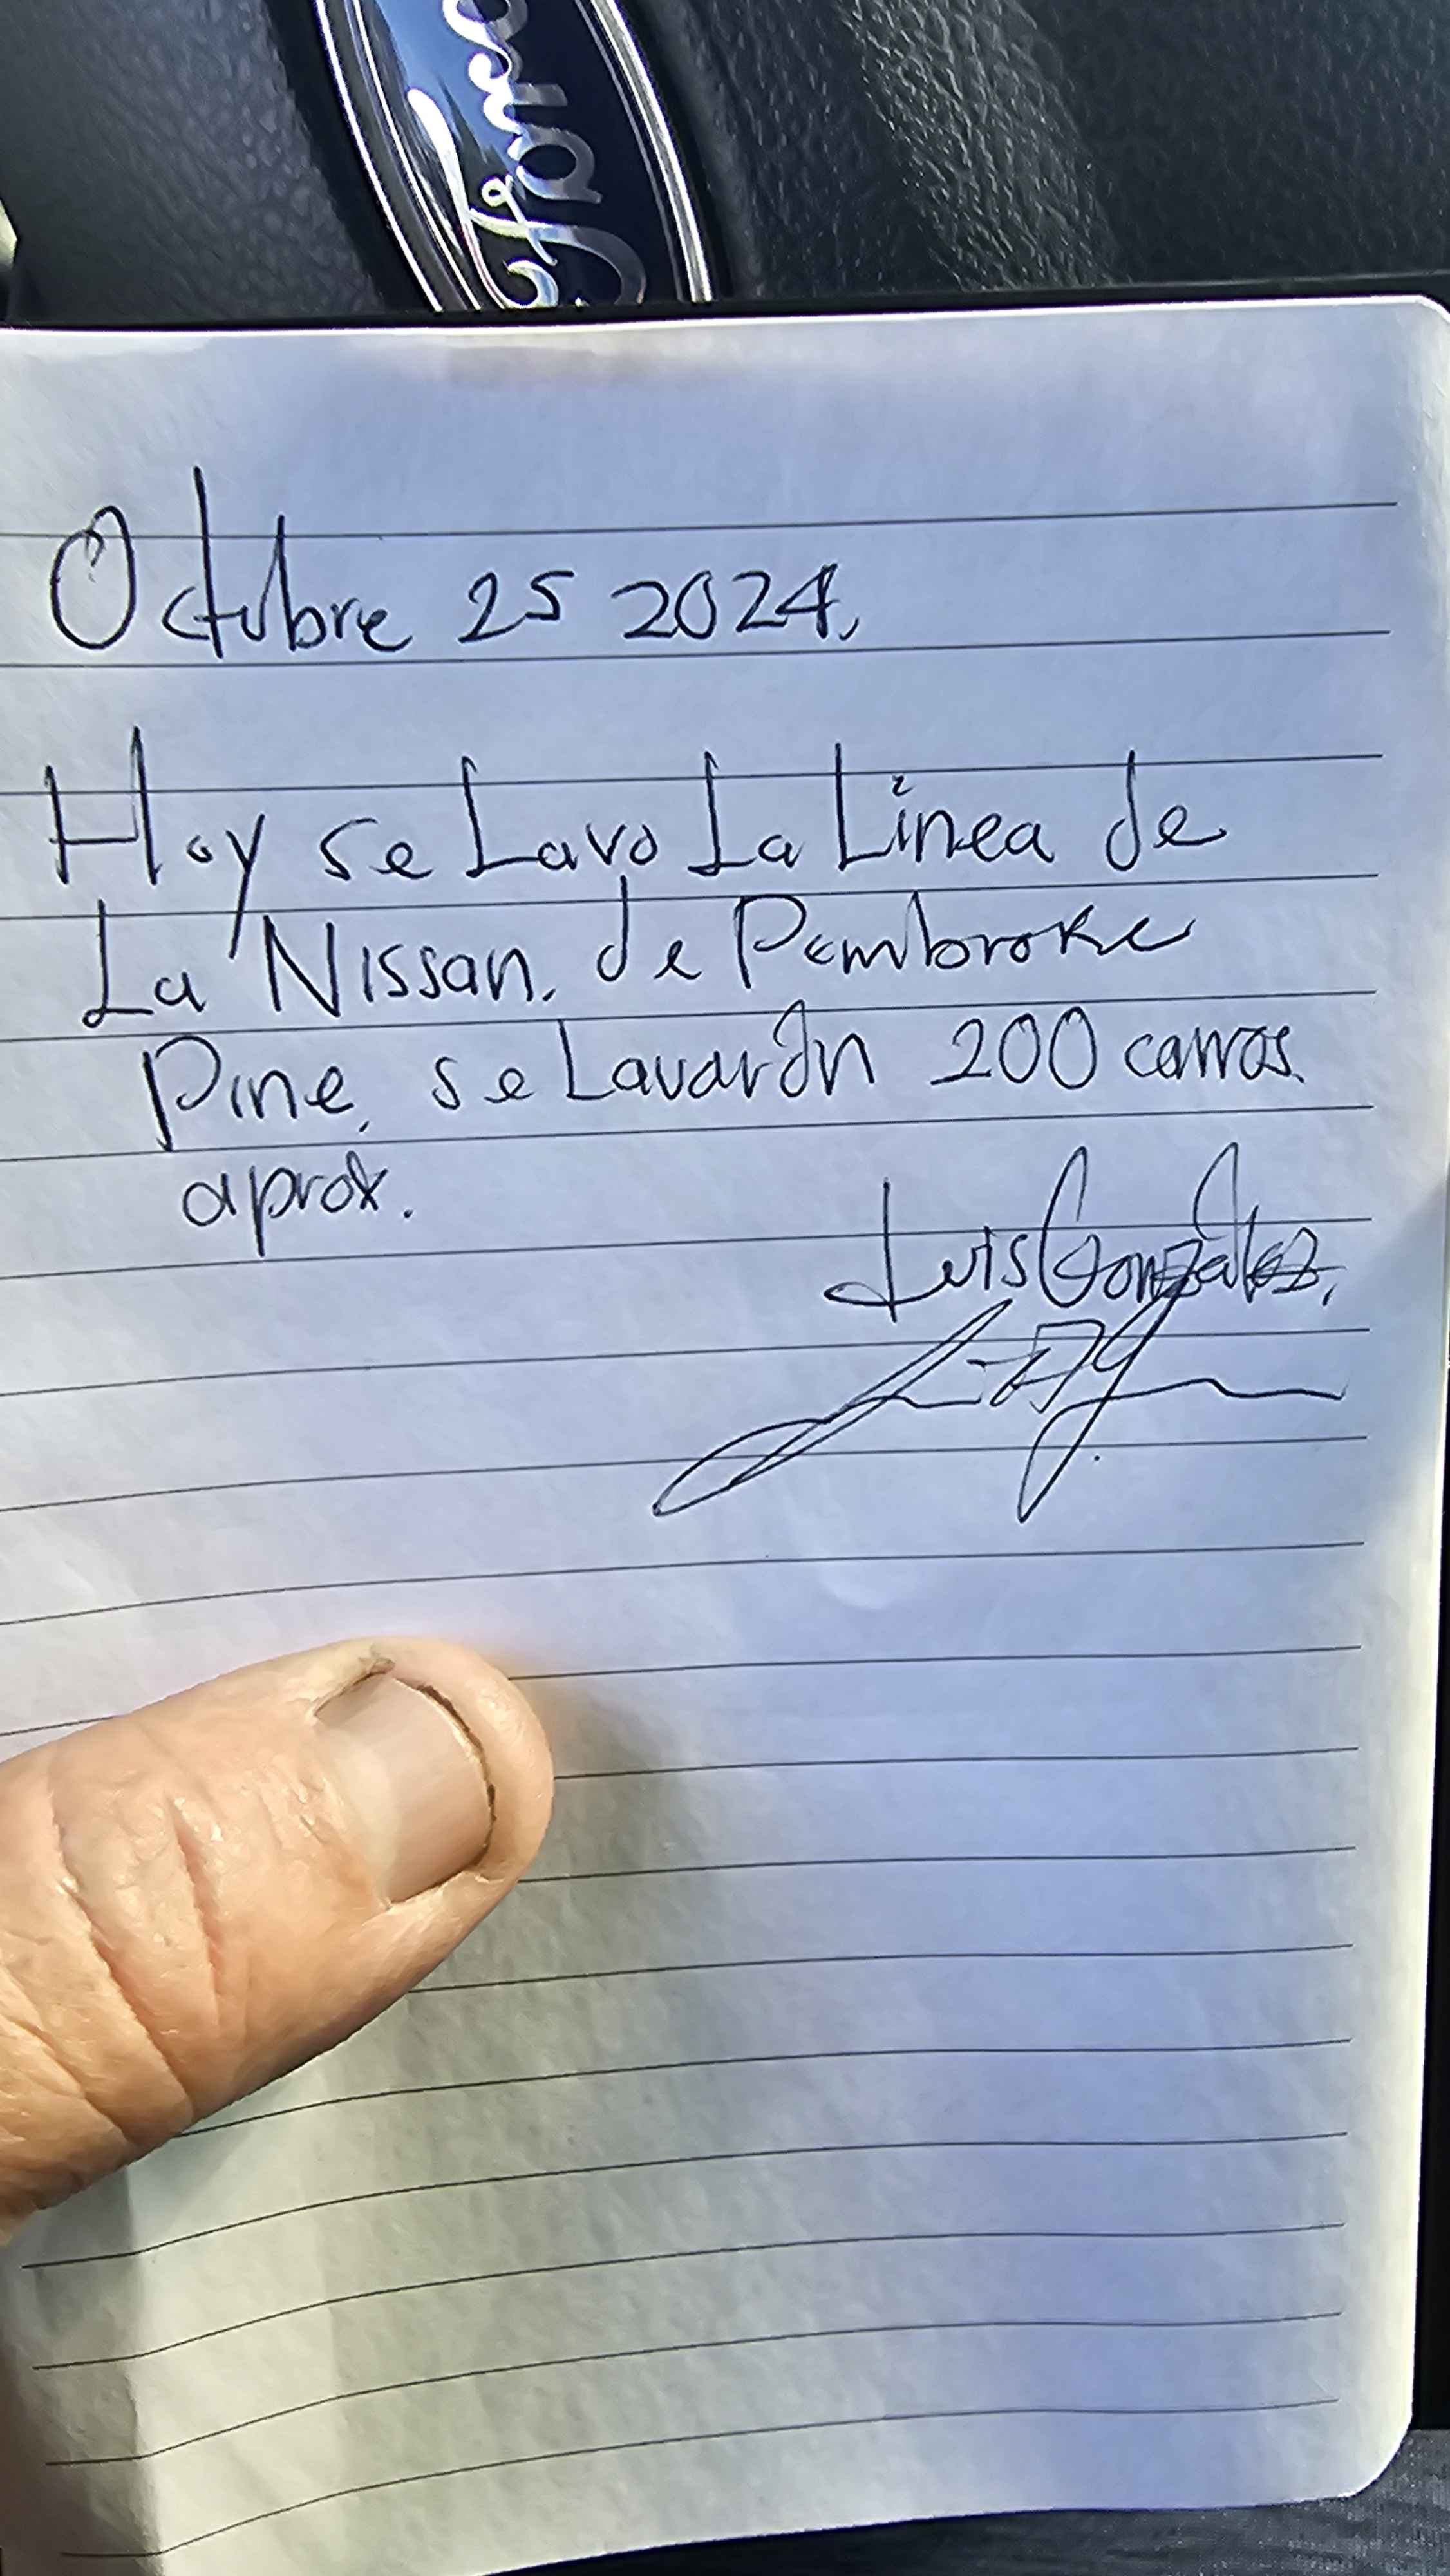 Ford
Octubre 25 2024.
Hoy se Lavo La Linea de
La Nissan. de Pembroke
Pine, se Lavarón 200 carros.
aprox.
Luis González.